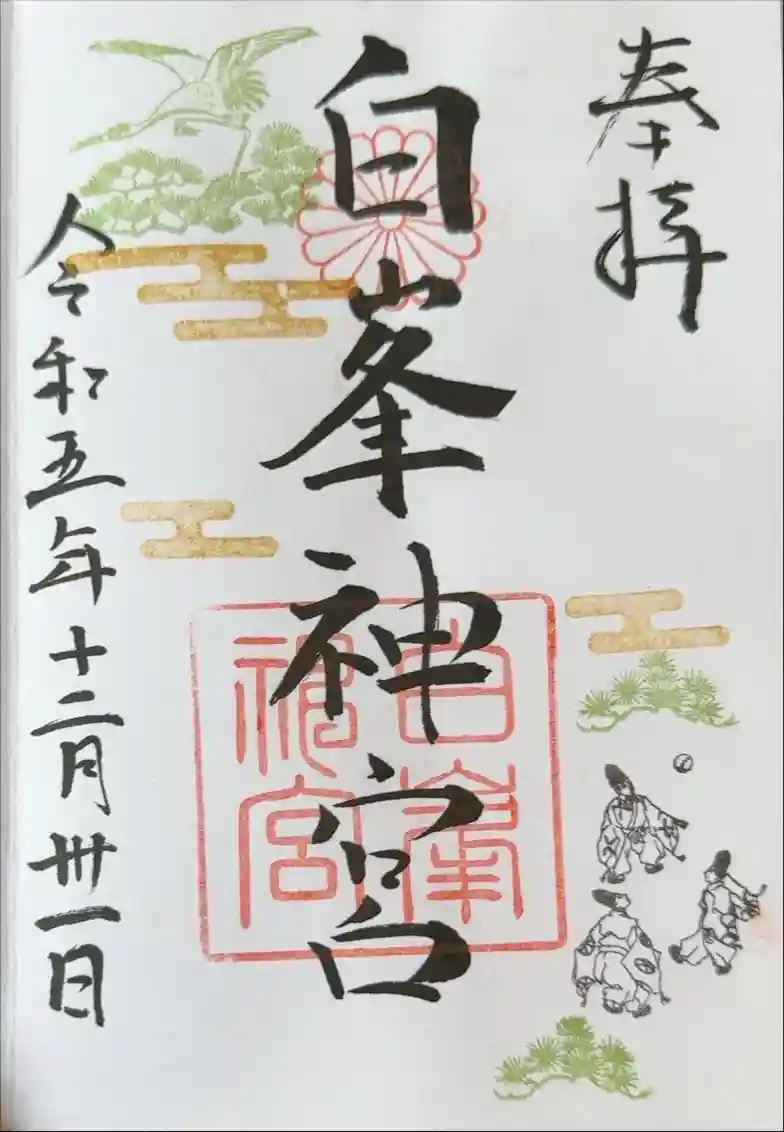 奉拝
白峯神宮
白峯神宮
令和五年十二月卅一日